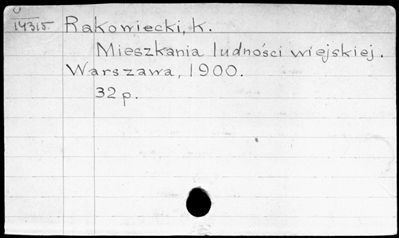 U
14315 Rakowiecki, K.
Mieszkania ludności wiejskiej.
Warszawa, 1900.
32 p.